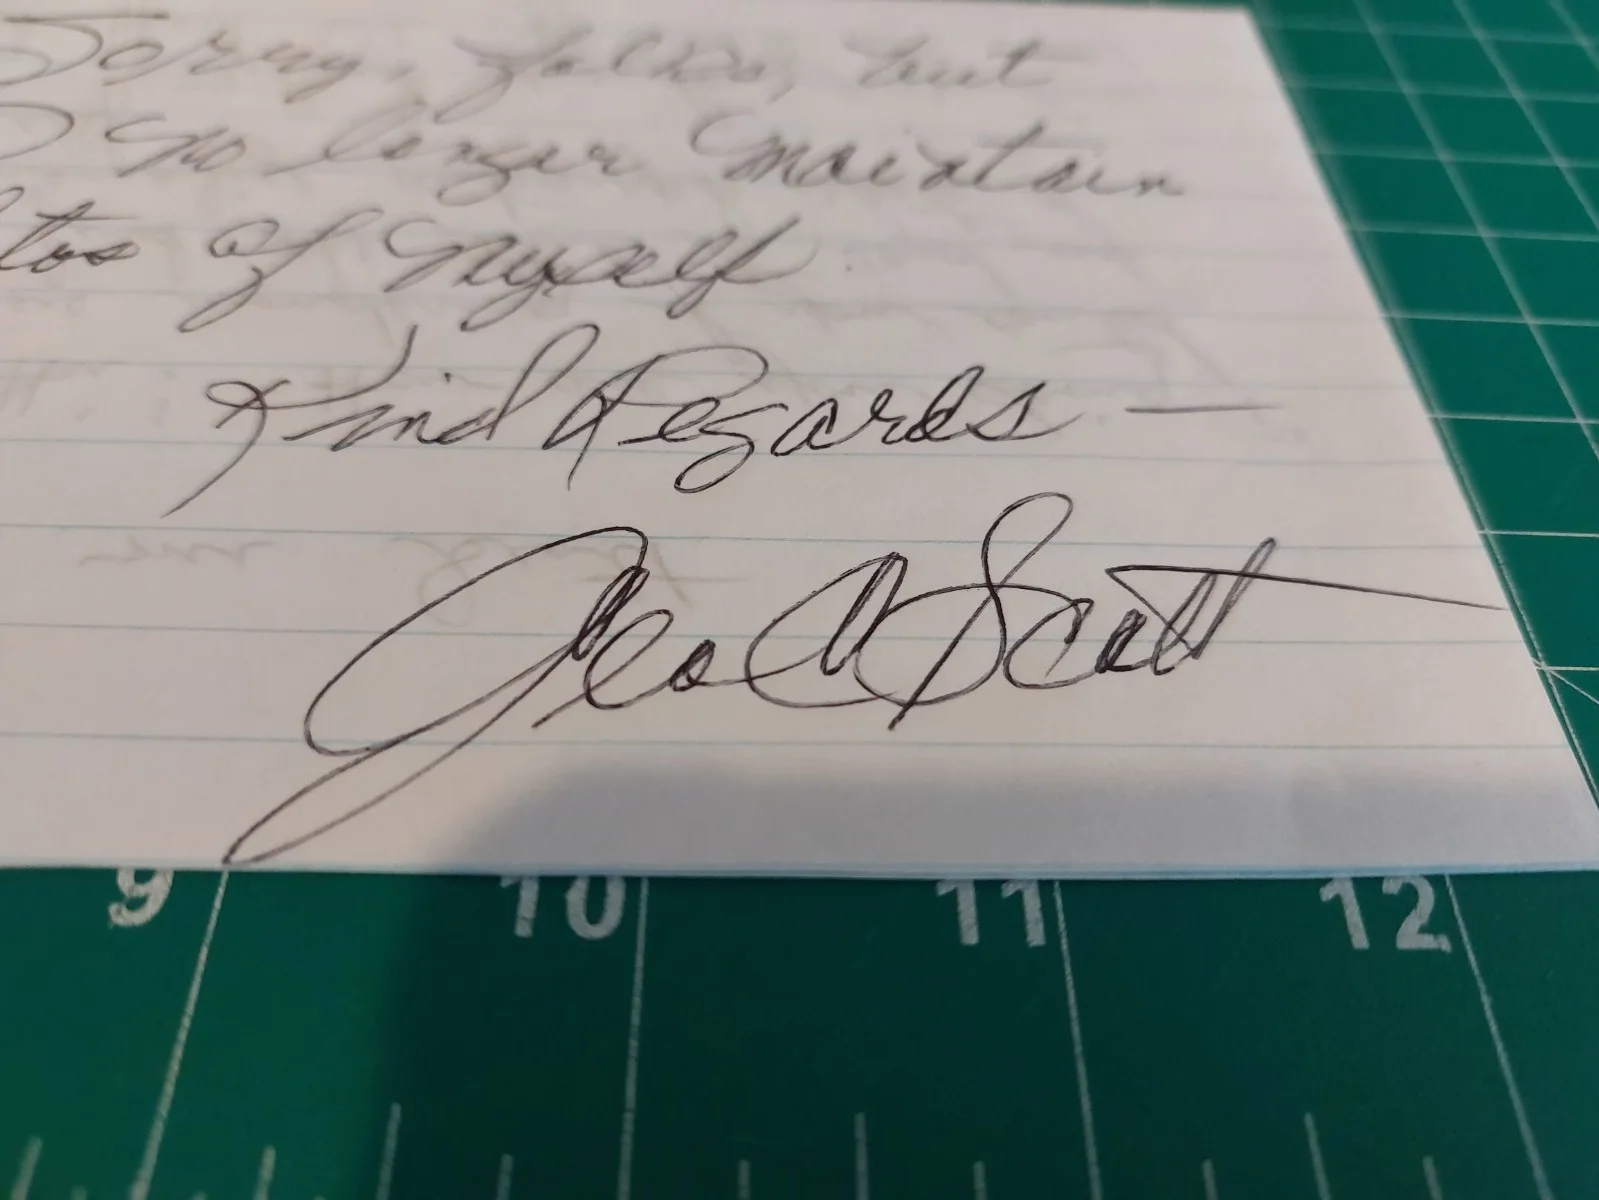 Sorry, folks, but
I no longer maintain
tos of myself.
Kind Regards —
Geo C Scott
9 10 11 12